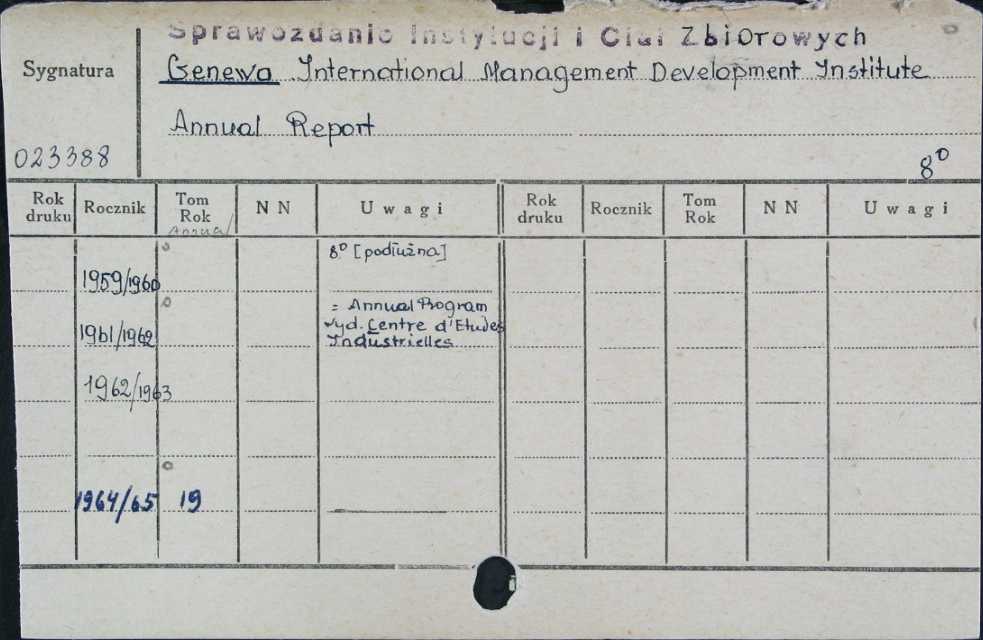 Sprawozdanie Instytucji i Ciał Zbiorowych
Sygnatura
Genewa International Management Development Institute
Annual Report
023388
8°
Rok druku Rocznik Tom Rok NN Uwagi Rok druku Rocznik Tom Rok NN Uwagi
Annual
8° [podłużna]
1959/1960
= Annual Program
1961/1962 wyd. Centre d'Etudes
Industrielles
1962/1963
1964/65 19